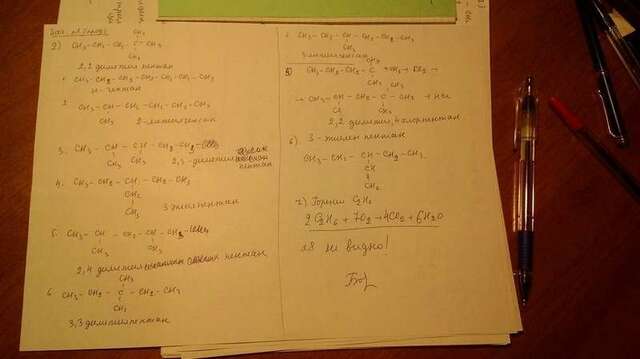 2) CH3-CH2-CH2-C-CH3
CH3
CH3
2,2 диметил пентан
CH3-CH2-CH2-CH2-CH2-CH2-CH3
н-гептан
2. CH3-CH-CH2-CH2-CH2-CH3
CH3
2-метилгексан
3. CH3-CH-CH-CH2-CH3
CH3 CH3
2,3-диметил
пентан
4. CH3-CH2-CH-CH2-CH3
CH2
CH3
3 этилпентан
5. CH3-CH-CH2-CH-CH3
CH3 CH3
2,4 диметил пентан
CH3
6. CH3-CH2-C-CH2-CH3
CH3
3,3 диметилпентан
CH3-CH2-CH-CH2-CH2-CH3
CH3
3-метилгексан
CH3
5) CH3-CH2-CH2-C
CH3
→ CH3-CH-CH2-C-CH3 + HCl
Cl CH3
2,2 диметил, 4 хлорпентан
6) 3-этилен пентан
CH3-CH2-CH-CH2-CH3
CH
CH2
7) Горения C2H6
2C2H6 + 7O2 → 4CO2 + 6H2O
не видно!